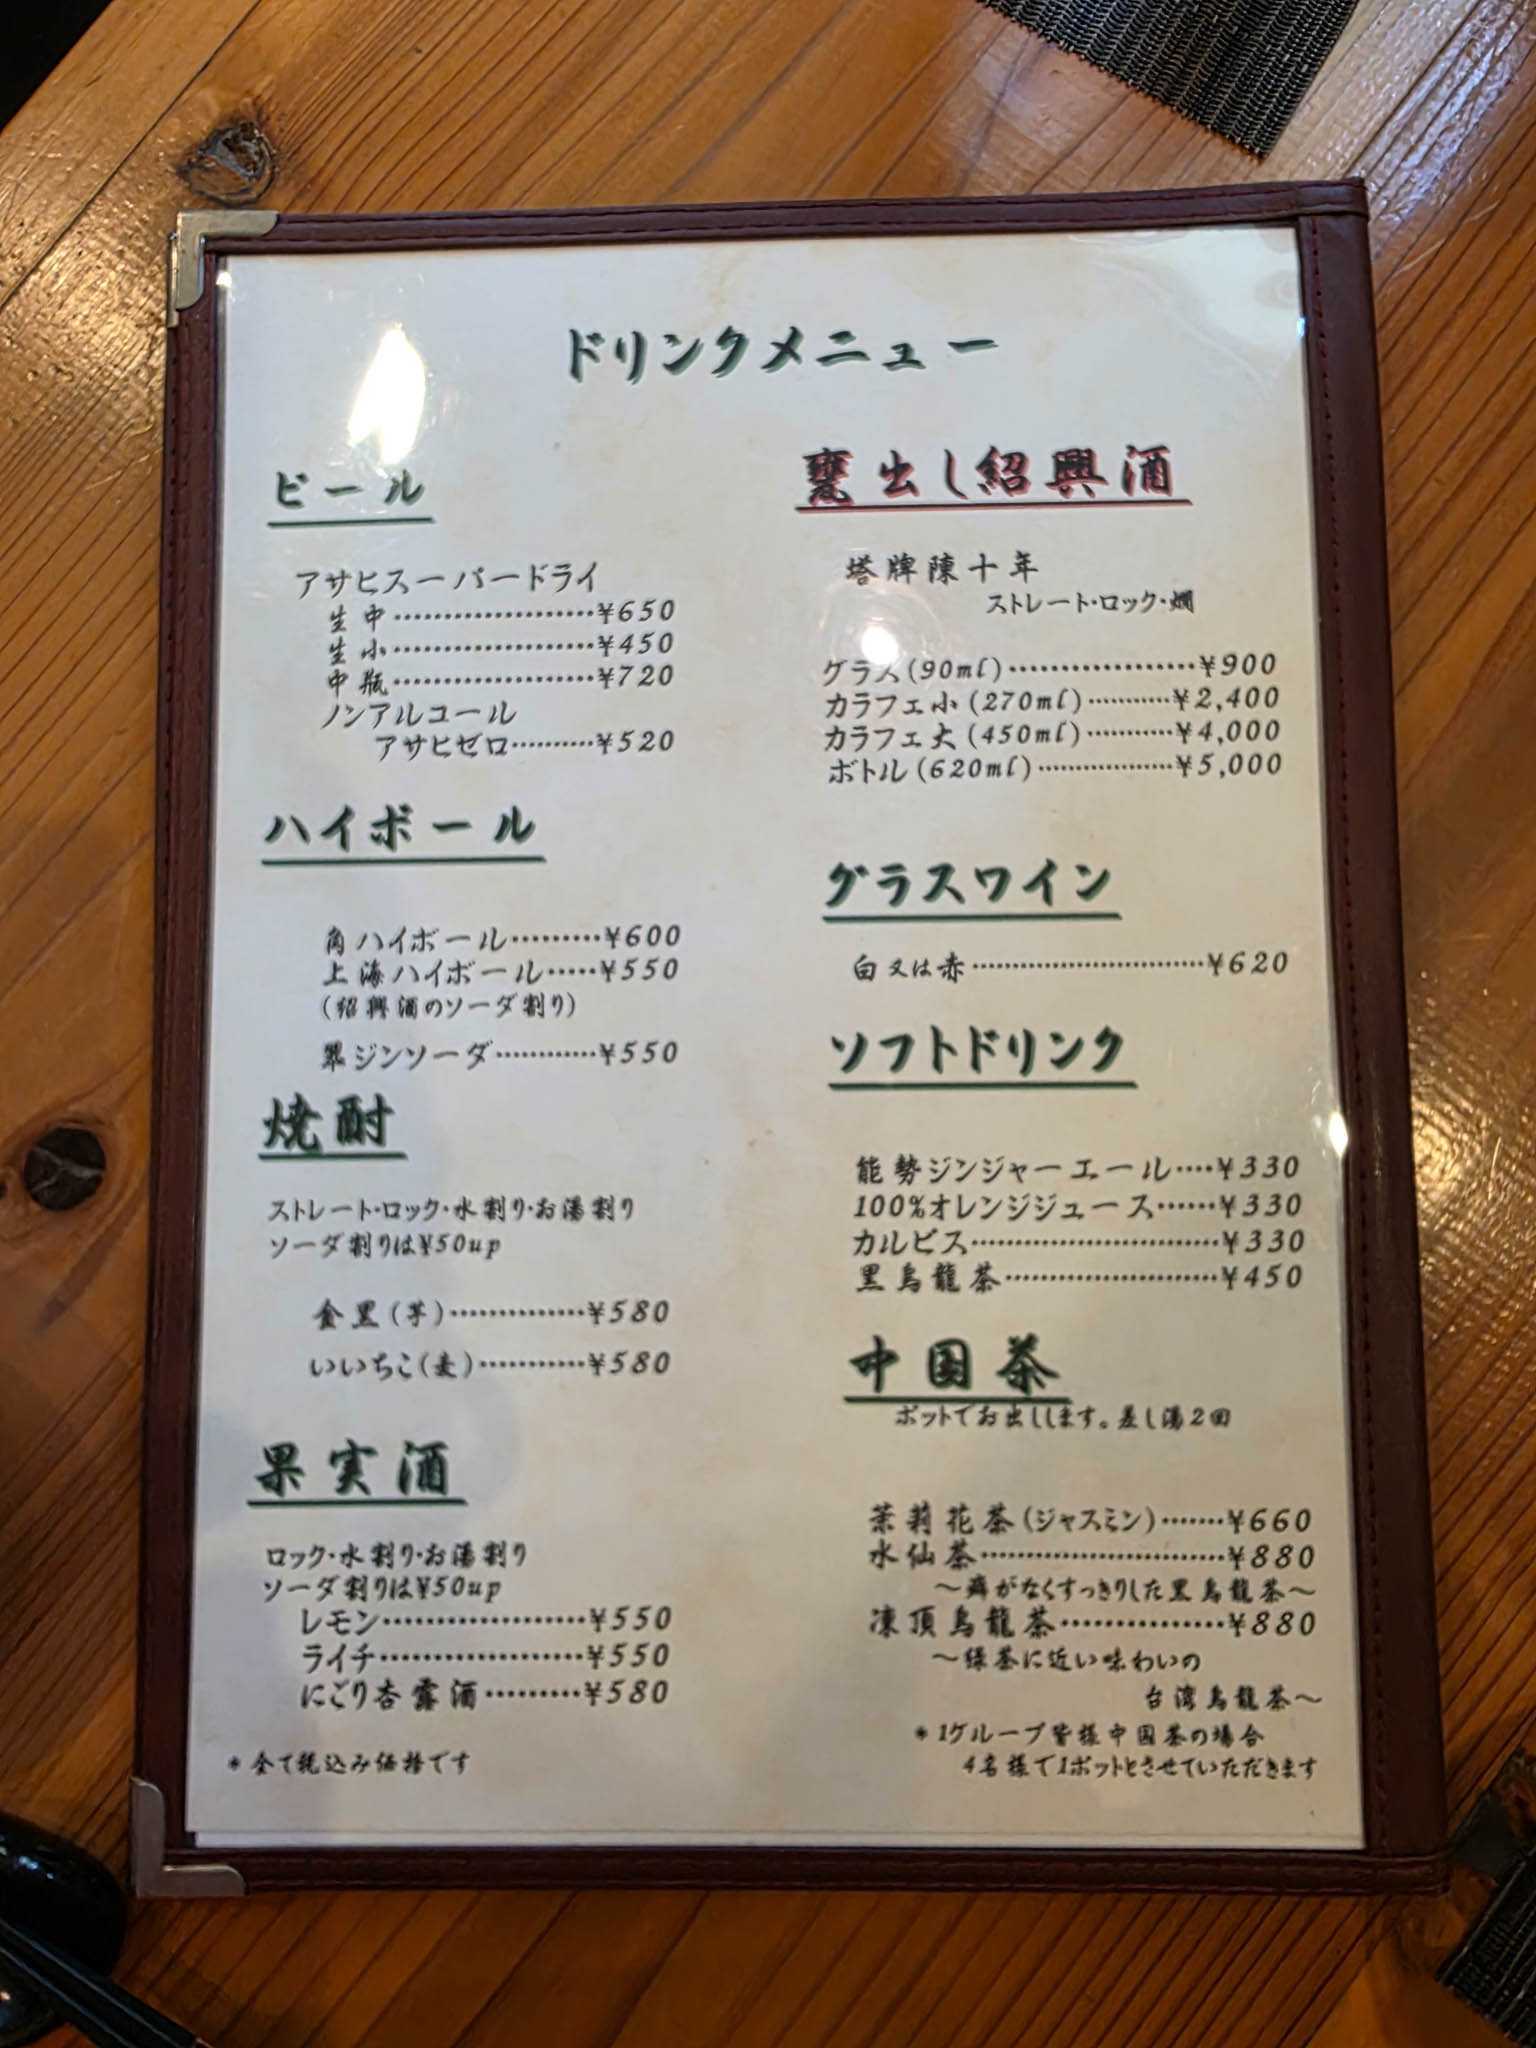 ドリンクメニュー
ビール
アサヒスーパードライ
生中····················¥650
生小····················¥450
中瓶····················¥720
ノンアルコール
アサヒゼロ··········¥520
ハイボール
角ハイボール·········¥600
上海ハイボール·····¥550
(紹興酒のソーダ割り)
翠ジンソーダ············¥550
焼酎
ストレート·ロック·水割り·お湯割り
ソーダ割りは¥50up
金黒(芋)··············¥580
いいちこ(麦)···········¥580
果実酒
ロック·水割り·お湯割り
ソーダ割りは¥50up
レモン····················¥550
ライチ····················¥550
にごり杏露酒··········¥580
*全て税込み価格です
甕出し紹興酒
塔牌陳十年
ストレート·ロック·燗
グラス(90ml)···················¥900
カラフェ小(270ml)···········¥2,400
カラフェ大(450ml)···········¥4,000
ボトル(620ml)··················¥5,000
グラスワイン
白又は赤····························¥620
ソフトドリンク
能勢ジンジャーエール····¥330
100%オレンジジュース······¥330
カルピス····························¥330
黒烏龍茶························¥450
中国茶
ポットでお出しします。差し湯2回
茉莉花茶(ジャスミン)·······¥660
水仙茶····························¥880
～癖がなくすっきりした黒烏龍茶～
凍頂烏龍茶················¥880
～緑茶に近い味わいの
台湾烏龍茶～
*1グループ皆様中国茶の場合
4名様で1ポットとさせていただきます